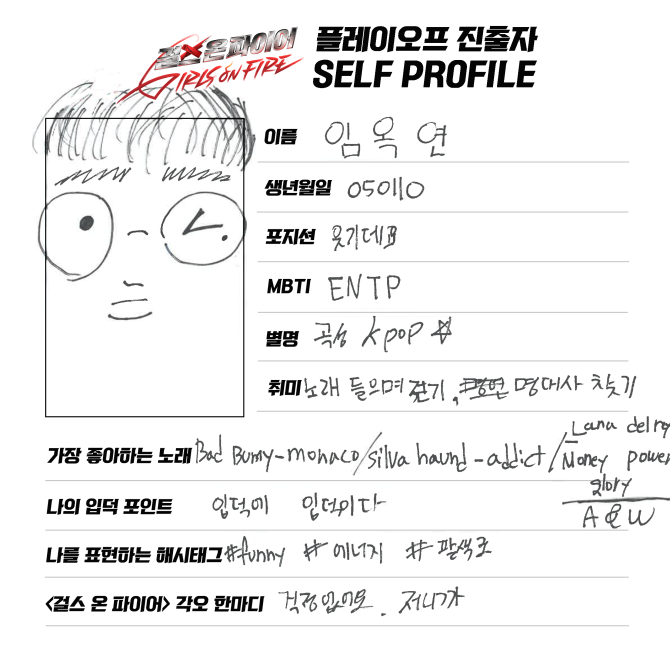 걸스 온 파이어
GIRLS ON FIRE
플레이오프 진출자
SELF PROFILE
이름 임옥연
생년월일 050110
포지션
MBTI ENTP
별명 곡성 kpop ☆
취미 노래 들으며 걷기, 명대사 찾기
가장 좋아하는 노래 Bad Bunny-monaco/silva haund-addict/Lana del rey
Money power
glory
A&W
나의 입덕 포인트 입덕에 입덕이다
나를 표현하는 해시태그 #funny #에너지 #팔색조
<걸스 온 파이어> 각오 한마디 걱정없어요. 저니까